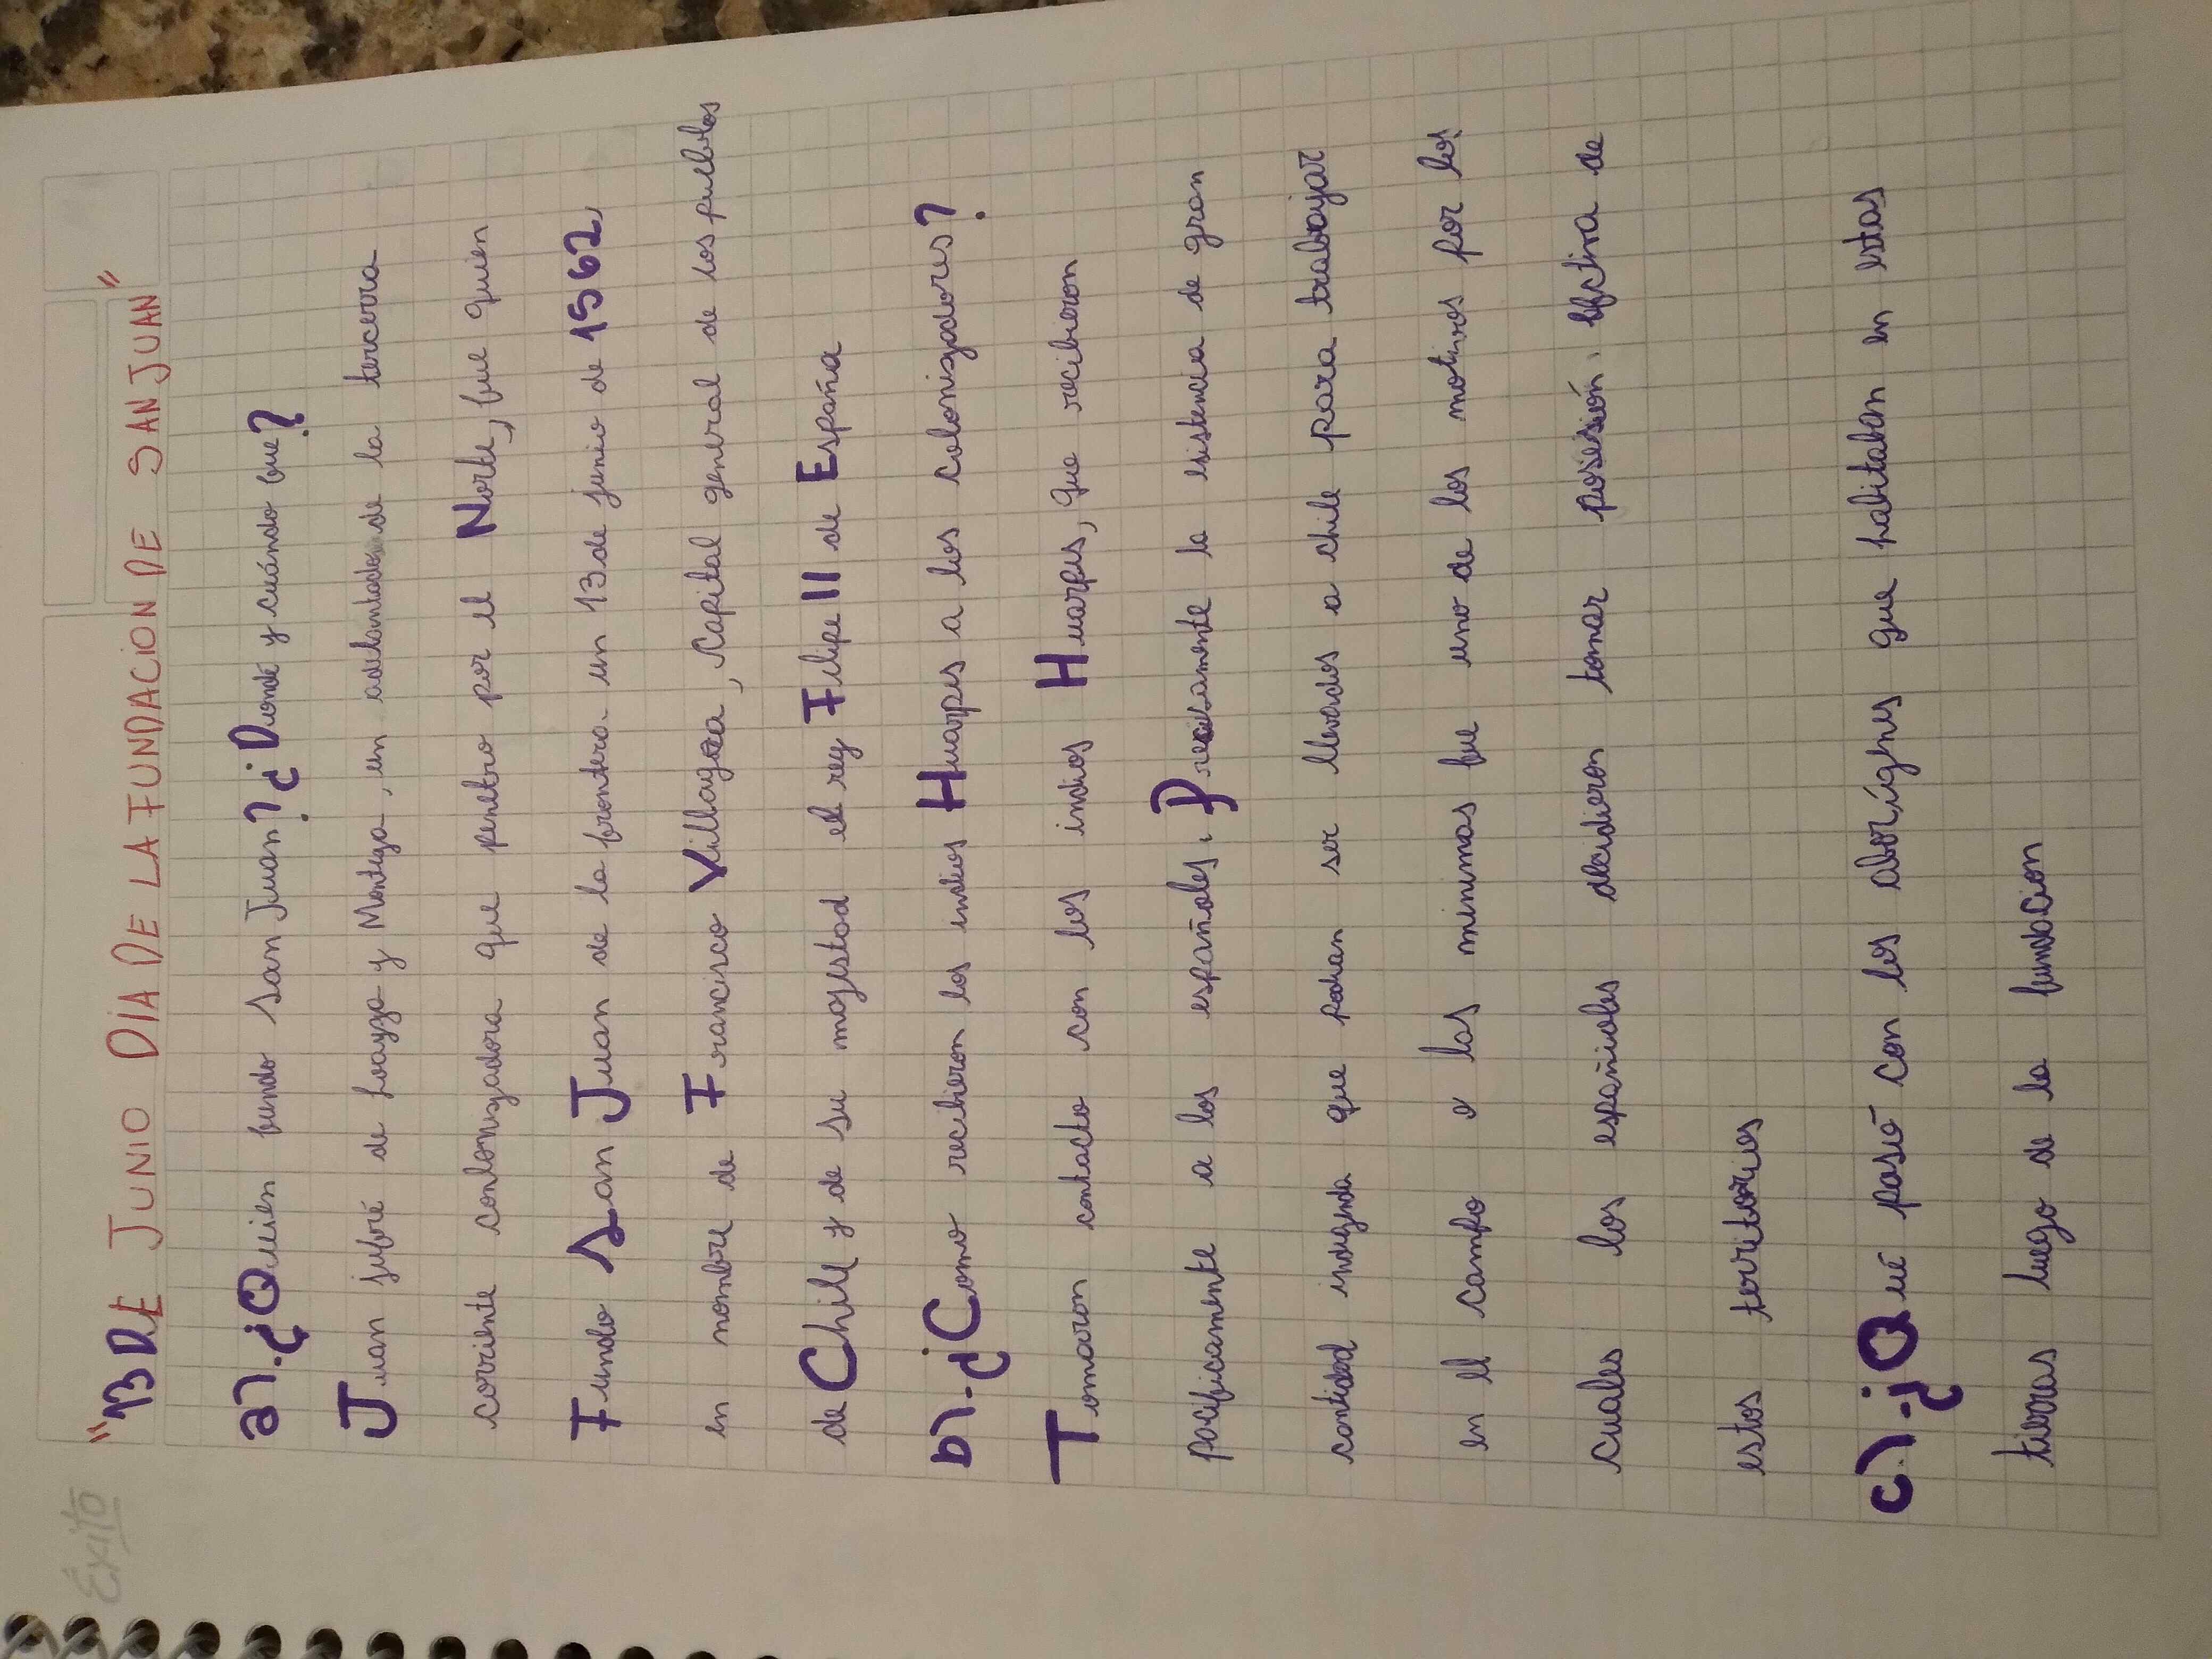 Éxito
"13 DE JUNIO DIA DE LA FUNDACION DE SAN JUAN"
a).¿Quien fundo San Juan? ¿Dondé y cuándo fue?
Juan jufré de Loayza y Montega, en adelantades de la tercerra
corriente conlonizadora que penetro por el Norte, fue quien
Fundo San Juan de la frontera un 13 de junio de 1562,
en nombre de Francisco Villagra, Capital general de los pueblos
de Chile y de su majestad el rey Felipe II de España
b).¿Como recibieron los indios Huarpes a los colonizadores?
Tomaron contacto con los indios Huarpes, que recibieron
pacificamente a los españoles. Precisamente la esistencia de gran
cantidad que podian ser llevados a chile para trabajar
en el campo o las minimas fue uno de los motivos por los
cuales los españoles decidieron tomar posesión. efectiva de
estos territorios
c).¿Qué pasó con los aborígenes que habitaban en estas
tierras luego de la fundacion